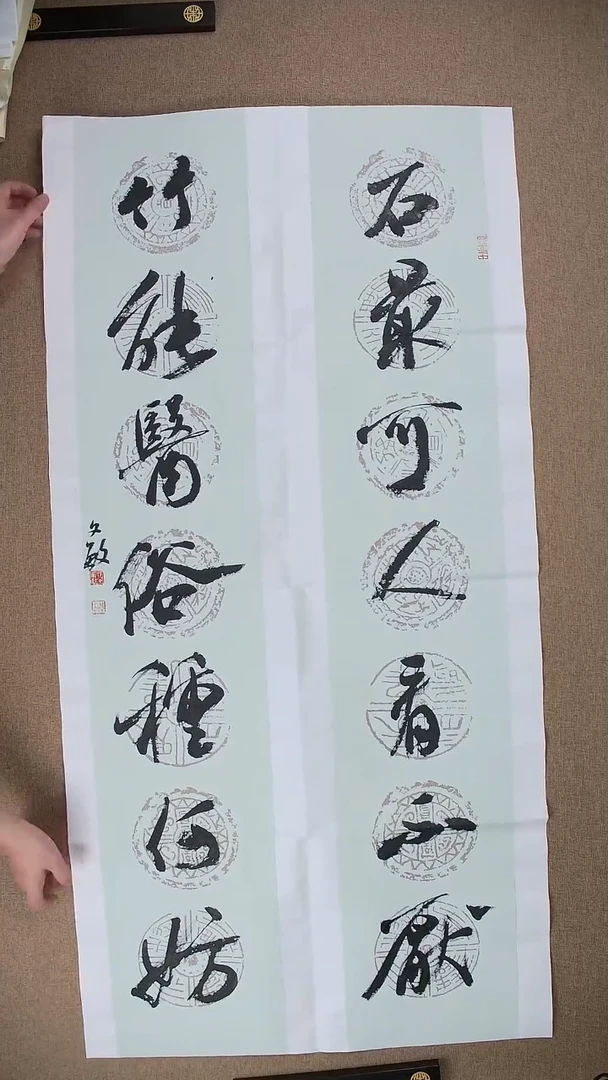 石最可人看不厭
竹能醫俗種何妨
文敏